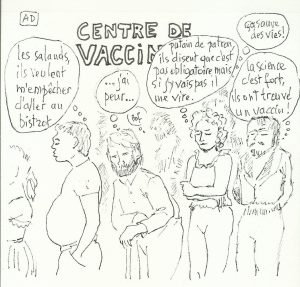 AD
CENTRE DE
VACCIN
les salauds,
ils veulent
m'empêcher
d'aller au
bistrot
...j'ai
peur...
Bof
putain de patron,
ils disent que c'est
pas obligatoire mais
si j'y vais pas il
me vire.
Ça sauve
des vies!
la science
c'est fort,
ils ont trouvé
un vaccin!